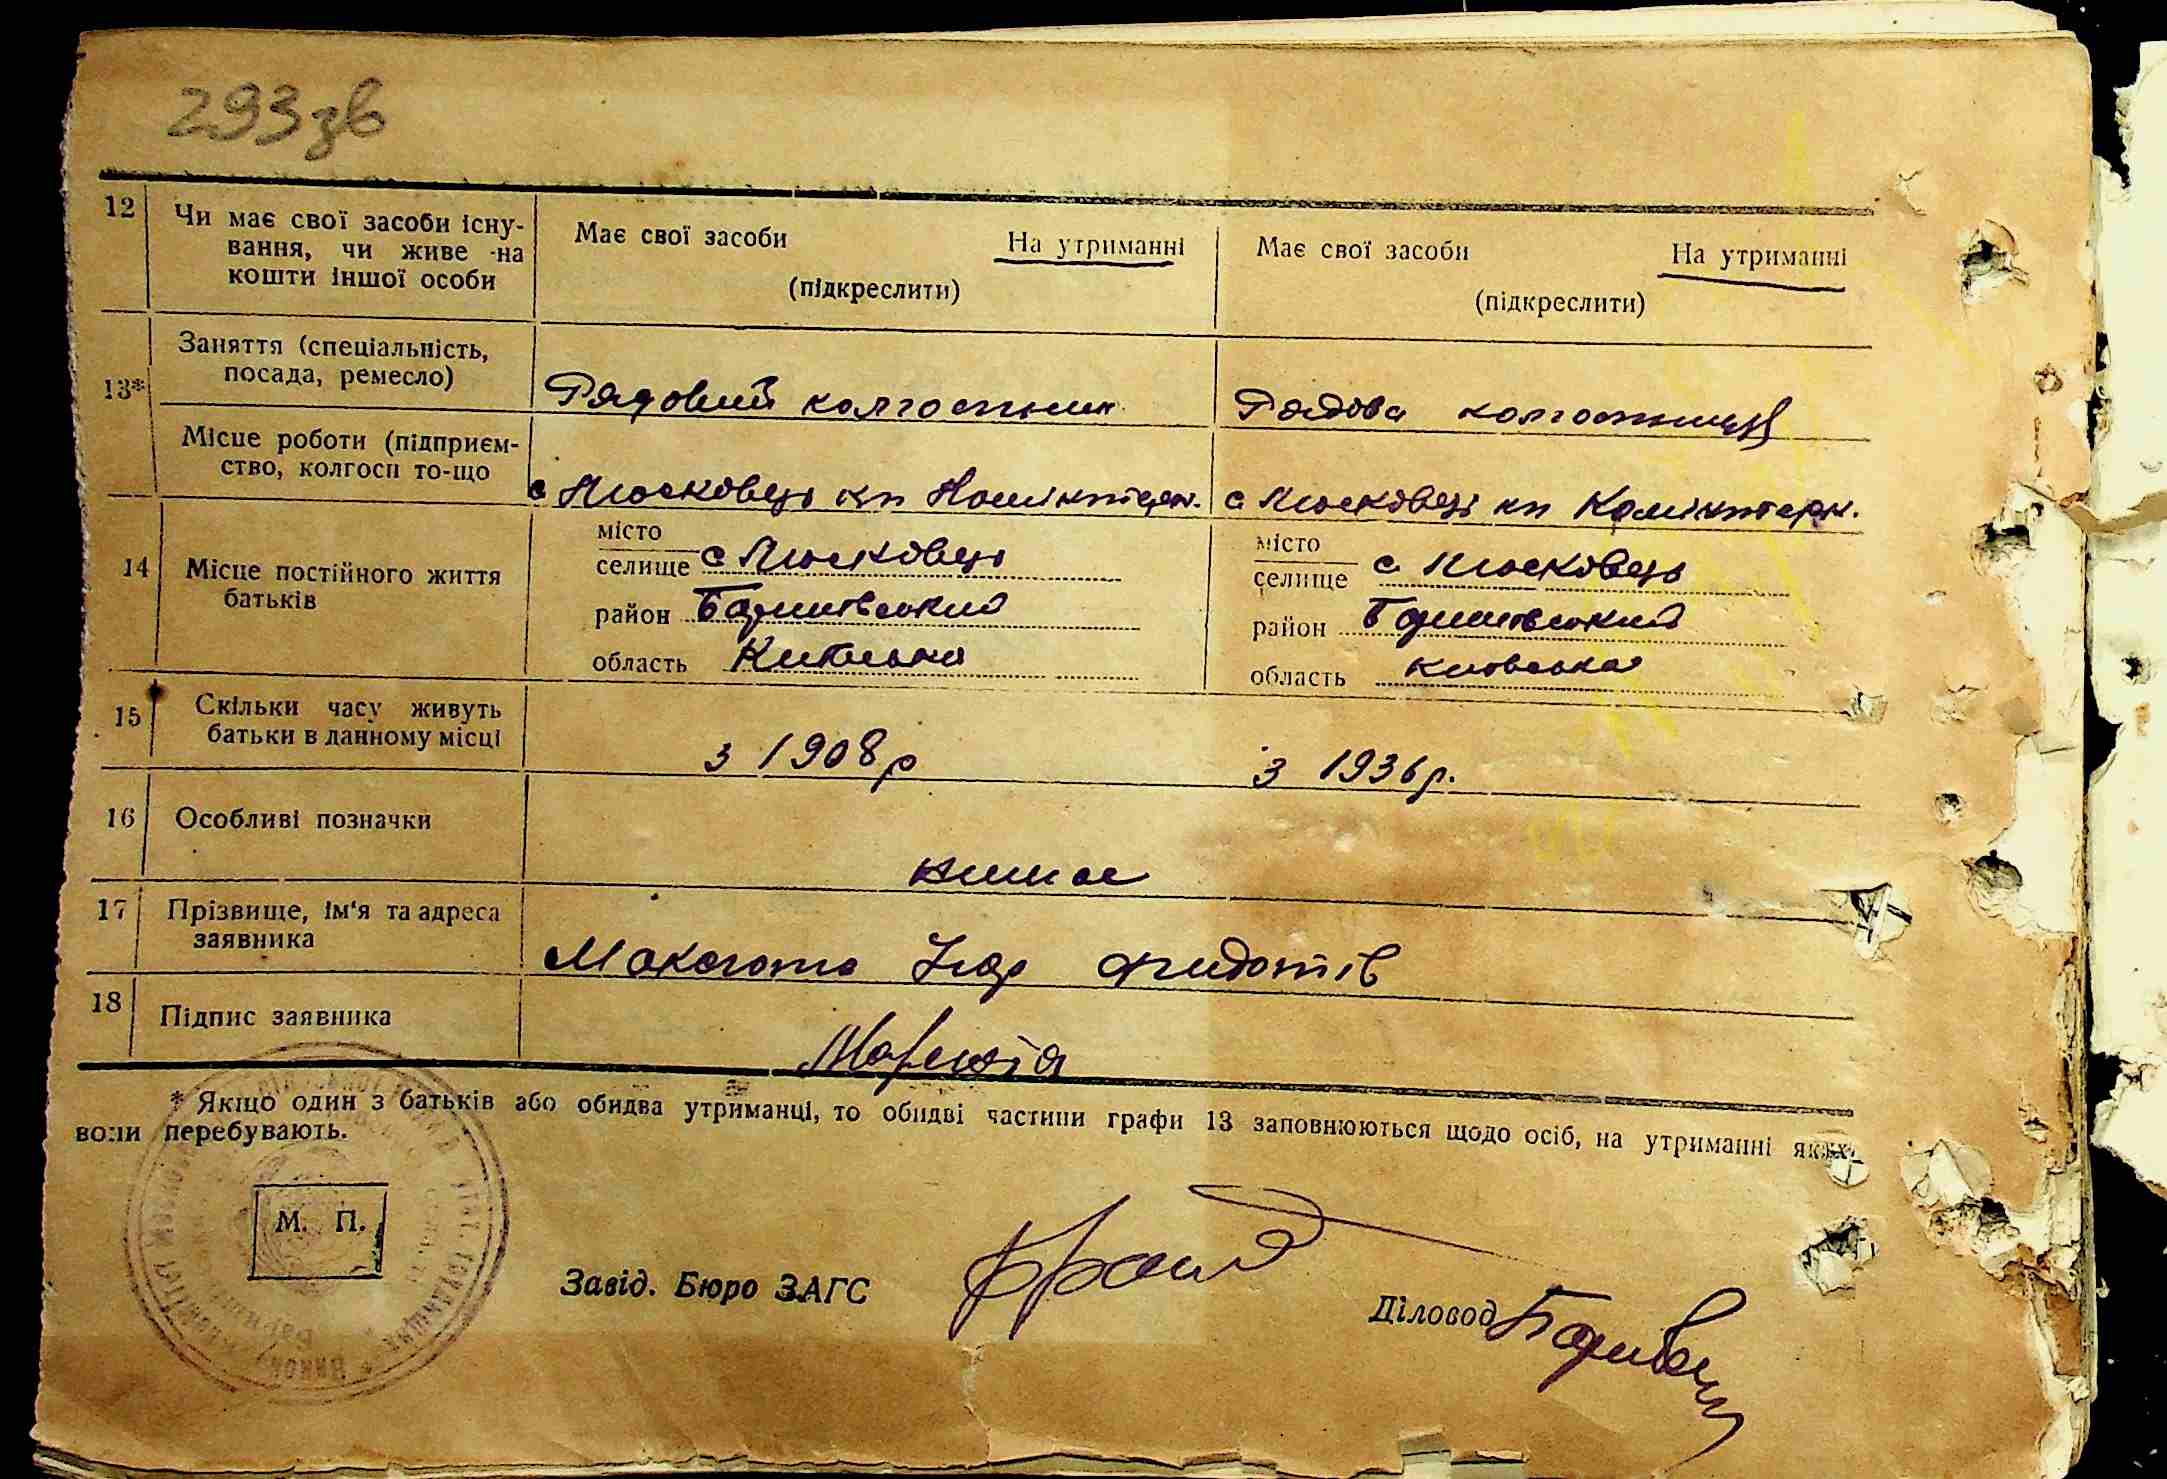 293зв
12 Чи має свої засоби існу-
вання, чи живе на
кошти іншої особи
Має свої засоби На утриманні
(підкреслити)
Має свої засоби На утриманні
(підкреслити)
13* Заняття (спеціальність,
посада, ремесло)
Рядовий колгоспник
Рядова колгоспниця
Місце роботи (підприєм-
ство, колгосп то-що
с Пюсковець кп Комінтерн.
с Пюсковець кп Комінтерн.
14 Місце постійного життя
батьків
місто
селище с Пюсковець
район Баришівський
область Київська
місто
селище с Пюсковець
район Баришівський
область Київська
15 Скільки часу живуть
батьки в данному місці
з 1908 р
з 1936 р.
16 Особливі позначки
немає
17 Прізвище, ім'я та адреса
заявника
Федотів
18 Підпис заявника
* Якщо один з батьків або обидва утриманці, то обидві частини графи 13 заповнюються щодо осіб, на утриманні яких
вони перебувають.
М. П.
Завід. Бюро ЗАГС
Діловод